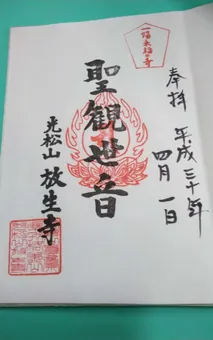 奉拝
平成三十年
四月一日
一陽来福の寺
聖観世音
光松山 放生寺